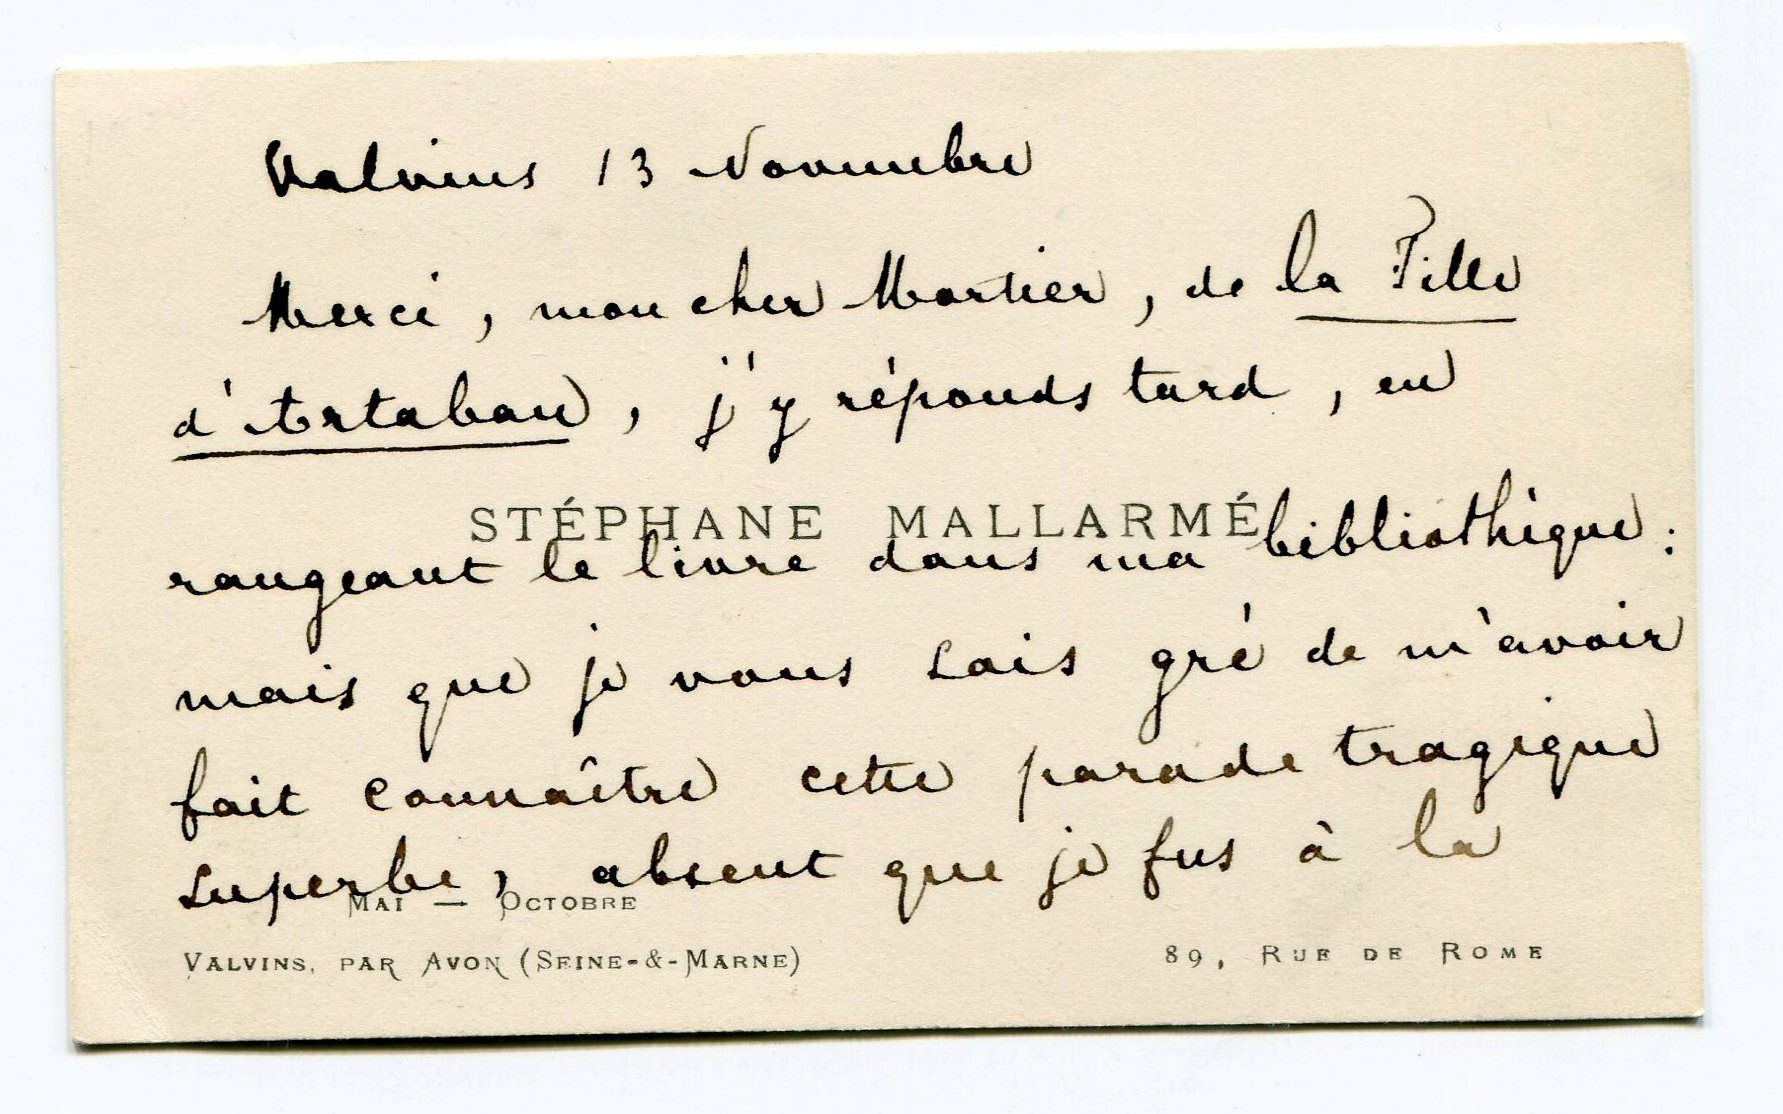 Valvins 13 Novembre
Merci, mon cher Mortier, de la Fille
d'Artaban, j'y réponds tard, en
STÉPHANE MALLARMÉ
rangeant le livre dans ma bibliothèque:
mais que je vous sais gré de m'avoir
fait connaître cette parade tragique
superbe, absent que je fus à la
MAI — OCTOBRE
VALVINS, PAR AVON (SEINE-&-MARNE)
89, RUE DE ROME